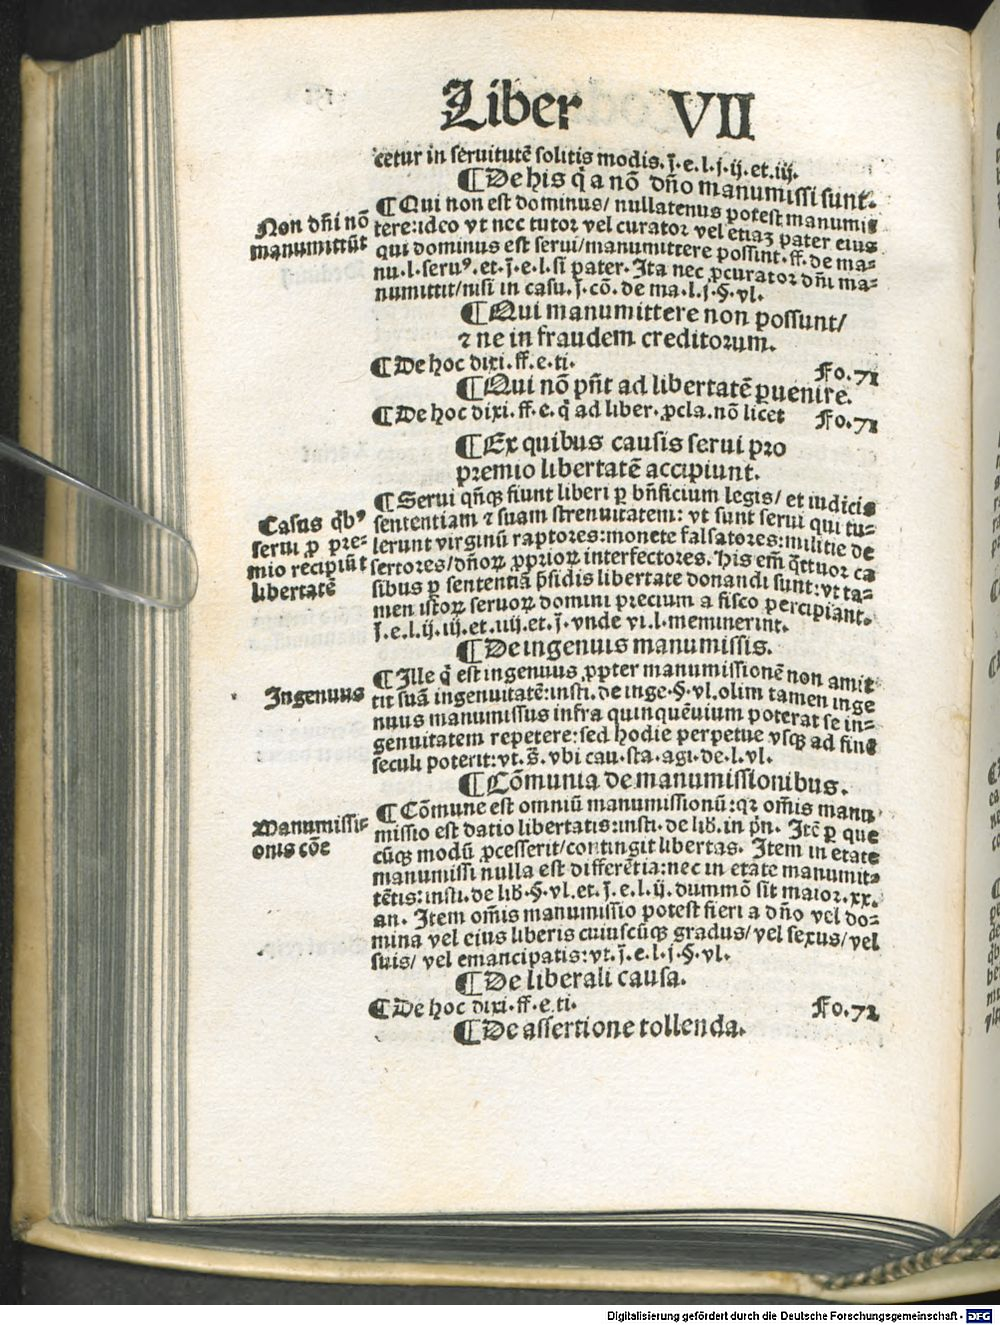 Liber VII
cetur in seruitutē solitis modis. j̄. e. l. j. ij. et. iij.
¶ De his q̄ a nō dn̄o manumissi sunt.
¶ Qui non est dominus/ nullatenus potest manumit
tere: ideo vt nec tutor vel curator vel etiaȝ pater eius
qui dominus est serui/ manumittere possint. ff. de ma-
nu. l. seruꝰ. et. j̄. e. l. si pater. Ita nec ꝓcurator dn̄i ma-
numittit/ nisi in casu. j̄. cō. de ma. l. j. §. vl.
Non dn̄i nō
manumittūt
¶ Qui manumittere non possunt/
⁊ ne in fraudem creditorum.
¶ De hoc dixi. ff. e. ti. Fo. 71
¶ Qui nō pn̄t ad libertatē ꝑuenire.
¶ De hoc dixi. ff. e. q̄ ad liber. ꝓcla. nō licet Fo. 71
¶ Ex quibus causis serui pro
premio libertatē accipiunt.
¶ Serui qn̄qꝫ fiunt liberi ꝑ bn̄ficium legis/ et iudicis
sententiam ⁊ suam strenuitatem: vt sunt serui qui tu-
lerunt virginū raptores: monete falsatores: militie de
sertores/ dn̄oꝝ ꝓprioꝝ interfectores. His em̄ q̄ttuor ca
sibus ꝑ sententiā p̄sidis libertate donandi sunt: vt ta-
men istoꝝ seruoꝝ domini precium a fisco percipiant.
j̄. e. l. ij. iij. et. iiij. et. j̄. vnde vi. l. meminerint.
Casus q̄bꝰ
serui ꝓ pre-
mio recipiūt
libertatē
¶ De ingenuis manumissis.
¶ Ille q̄ est ingenuus ꝓpter manumissionē non amit
tit suā ingenuitatē: insti. de inge. §. vl. olim tamen inge
nuus manumissus infra quinquēuium poterat se in-
genuitatem repetere: sed hodie perpetue vsqꝫ ad finē
seculi poterit: vt. s̄. vbi cau. sta. agi. de. l. vl.
Ingenuus
¶ Cōmunia de manumissionibus.
¶ Cōmune est omniū manumissionū: qꝛ om̄is manu
missio est datio libertatis: insti. de lib̄. in pn̄. Itē ꝑ que
cūqꝫ modū ꝓcesserit/ contingit libertas. Item in etate
manumissi nulla est differētia: nec in etate manumit-
tētis: insti. de lib̄. §. vl. et. j̄. e. l. ij. dummō sit maior. xx.
an. Item om̄is manumissio potest fieri a dn̄o vel do-
mina vel eius liberis cuiuscūqꝫ gradus/ vel sexus/ vel
suis/ vel emancipatis: vt. j̄. e. l. j. §. vl.
Manumissi-
onis cōe
¶ De liberali causa.
¶ De hoc dixi. ff. e. ti. Fo. 72
¶ De assertione tollenda.
Digitalisierung gefördert durch die Deutsche Forschungsgemeinschaft - DFG